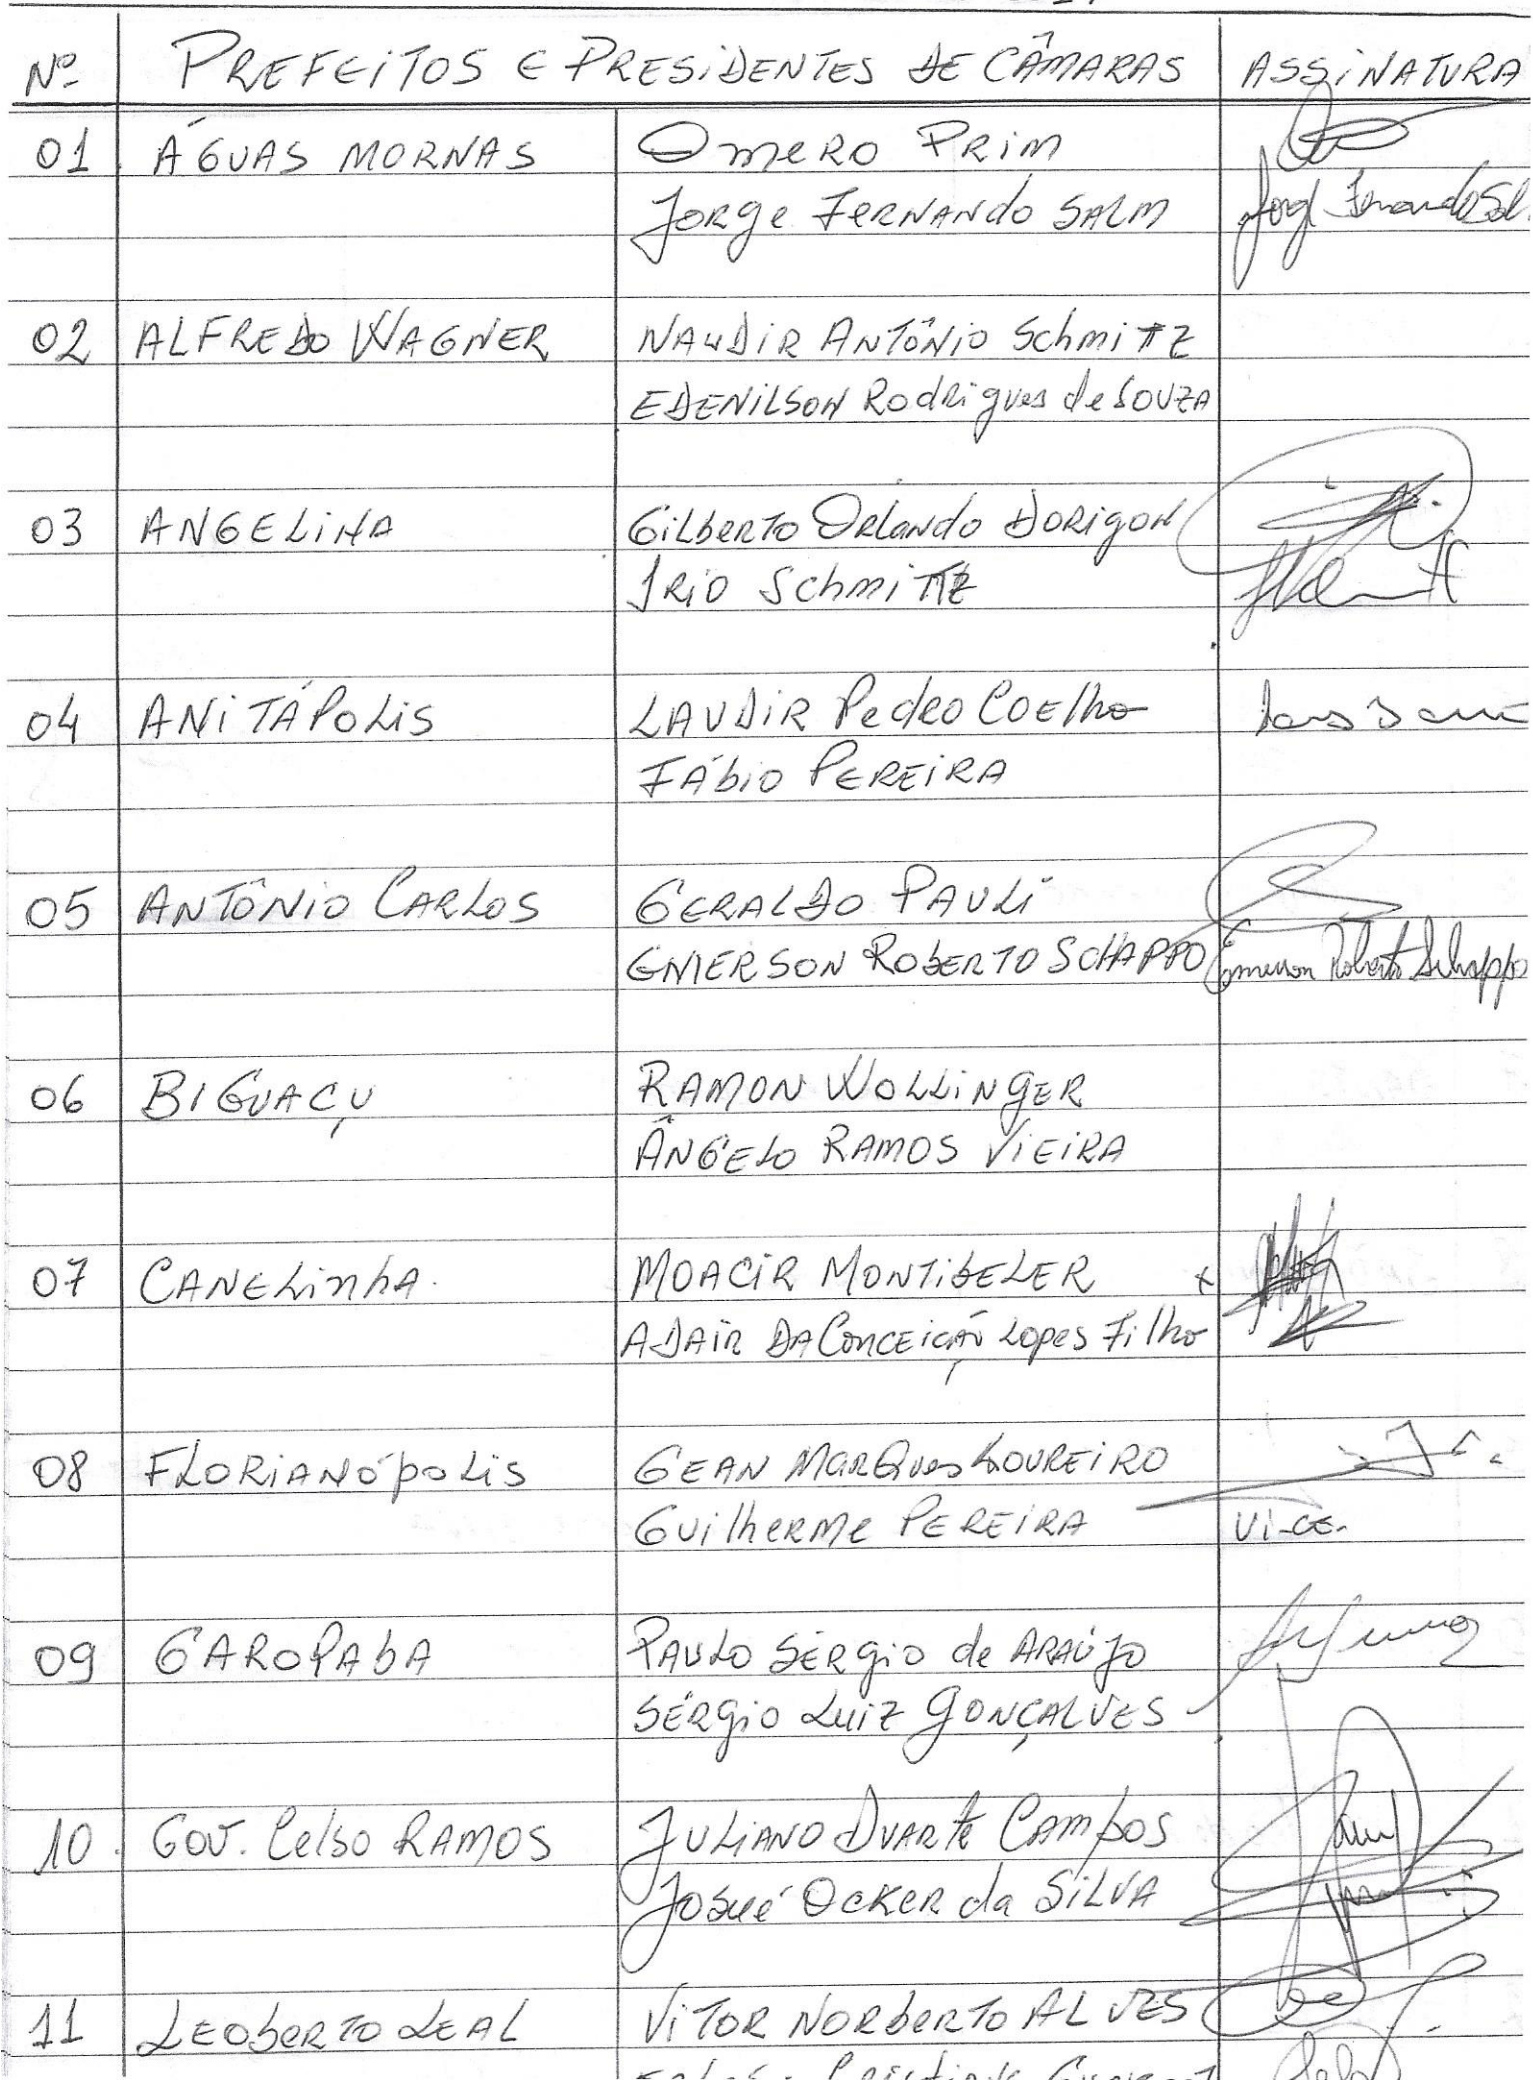 Nº PREFEITOS E PRESIDENTES DE CÂMARAS ASSINATURA
01 ÁGUAS MORNAS OMERO PRIM
JORGE FERNANDO SALM
02 ALFREDO WAGNER NAUDIR ANTÔNIO SCHMITZ
EDENILSON RODRIGUES de SOUZA
03 ANGELINA GILBERTO ORLANDO DORIGON
IRIO SCHMITZ
04 ANITÁPOLIS LAUDIR PEDRO COELHO
FÁBIO PEREIRA
05 ANTÔNIO CARLOS GERALDO PAULI
EMERSON ROBERTO SCHAPPO Emerson Roberto Schappo
06 BIGUAÇU RAMON WOLLINGER
ÂNGELO RAMOS VIEIRA
07 CANELINHA. MOACIR MONTIBELER x
ADAIR DA CONCEIÇÃO LOPES FILHO
08 FLORIANÓPOLIS GEAN MARQUES LOUREIRO
GUILHERME PEREIRA Vice.
09 GAROPABA PAULO SÉRGIO de ARAÚJO
SÉRGIO LUIZ GONÇALVES
10. GOV. CELSO RAMOS JULIANO DUARTE CAMPOS
JOSUÉ OCKER da SILVA
11 LEOBERTO LEAL VITOR NORBERTO ALVES